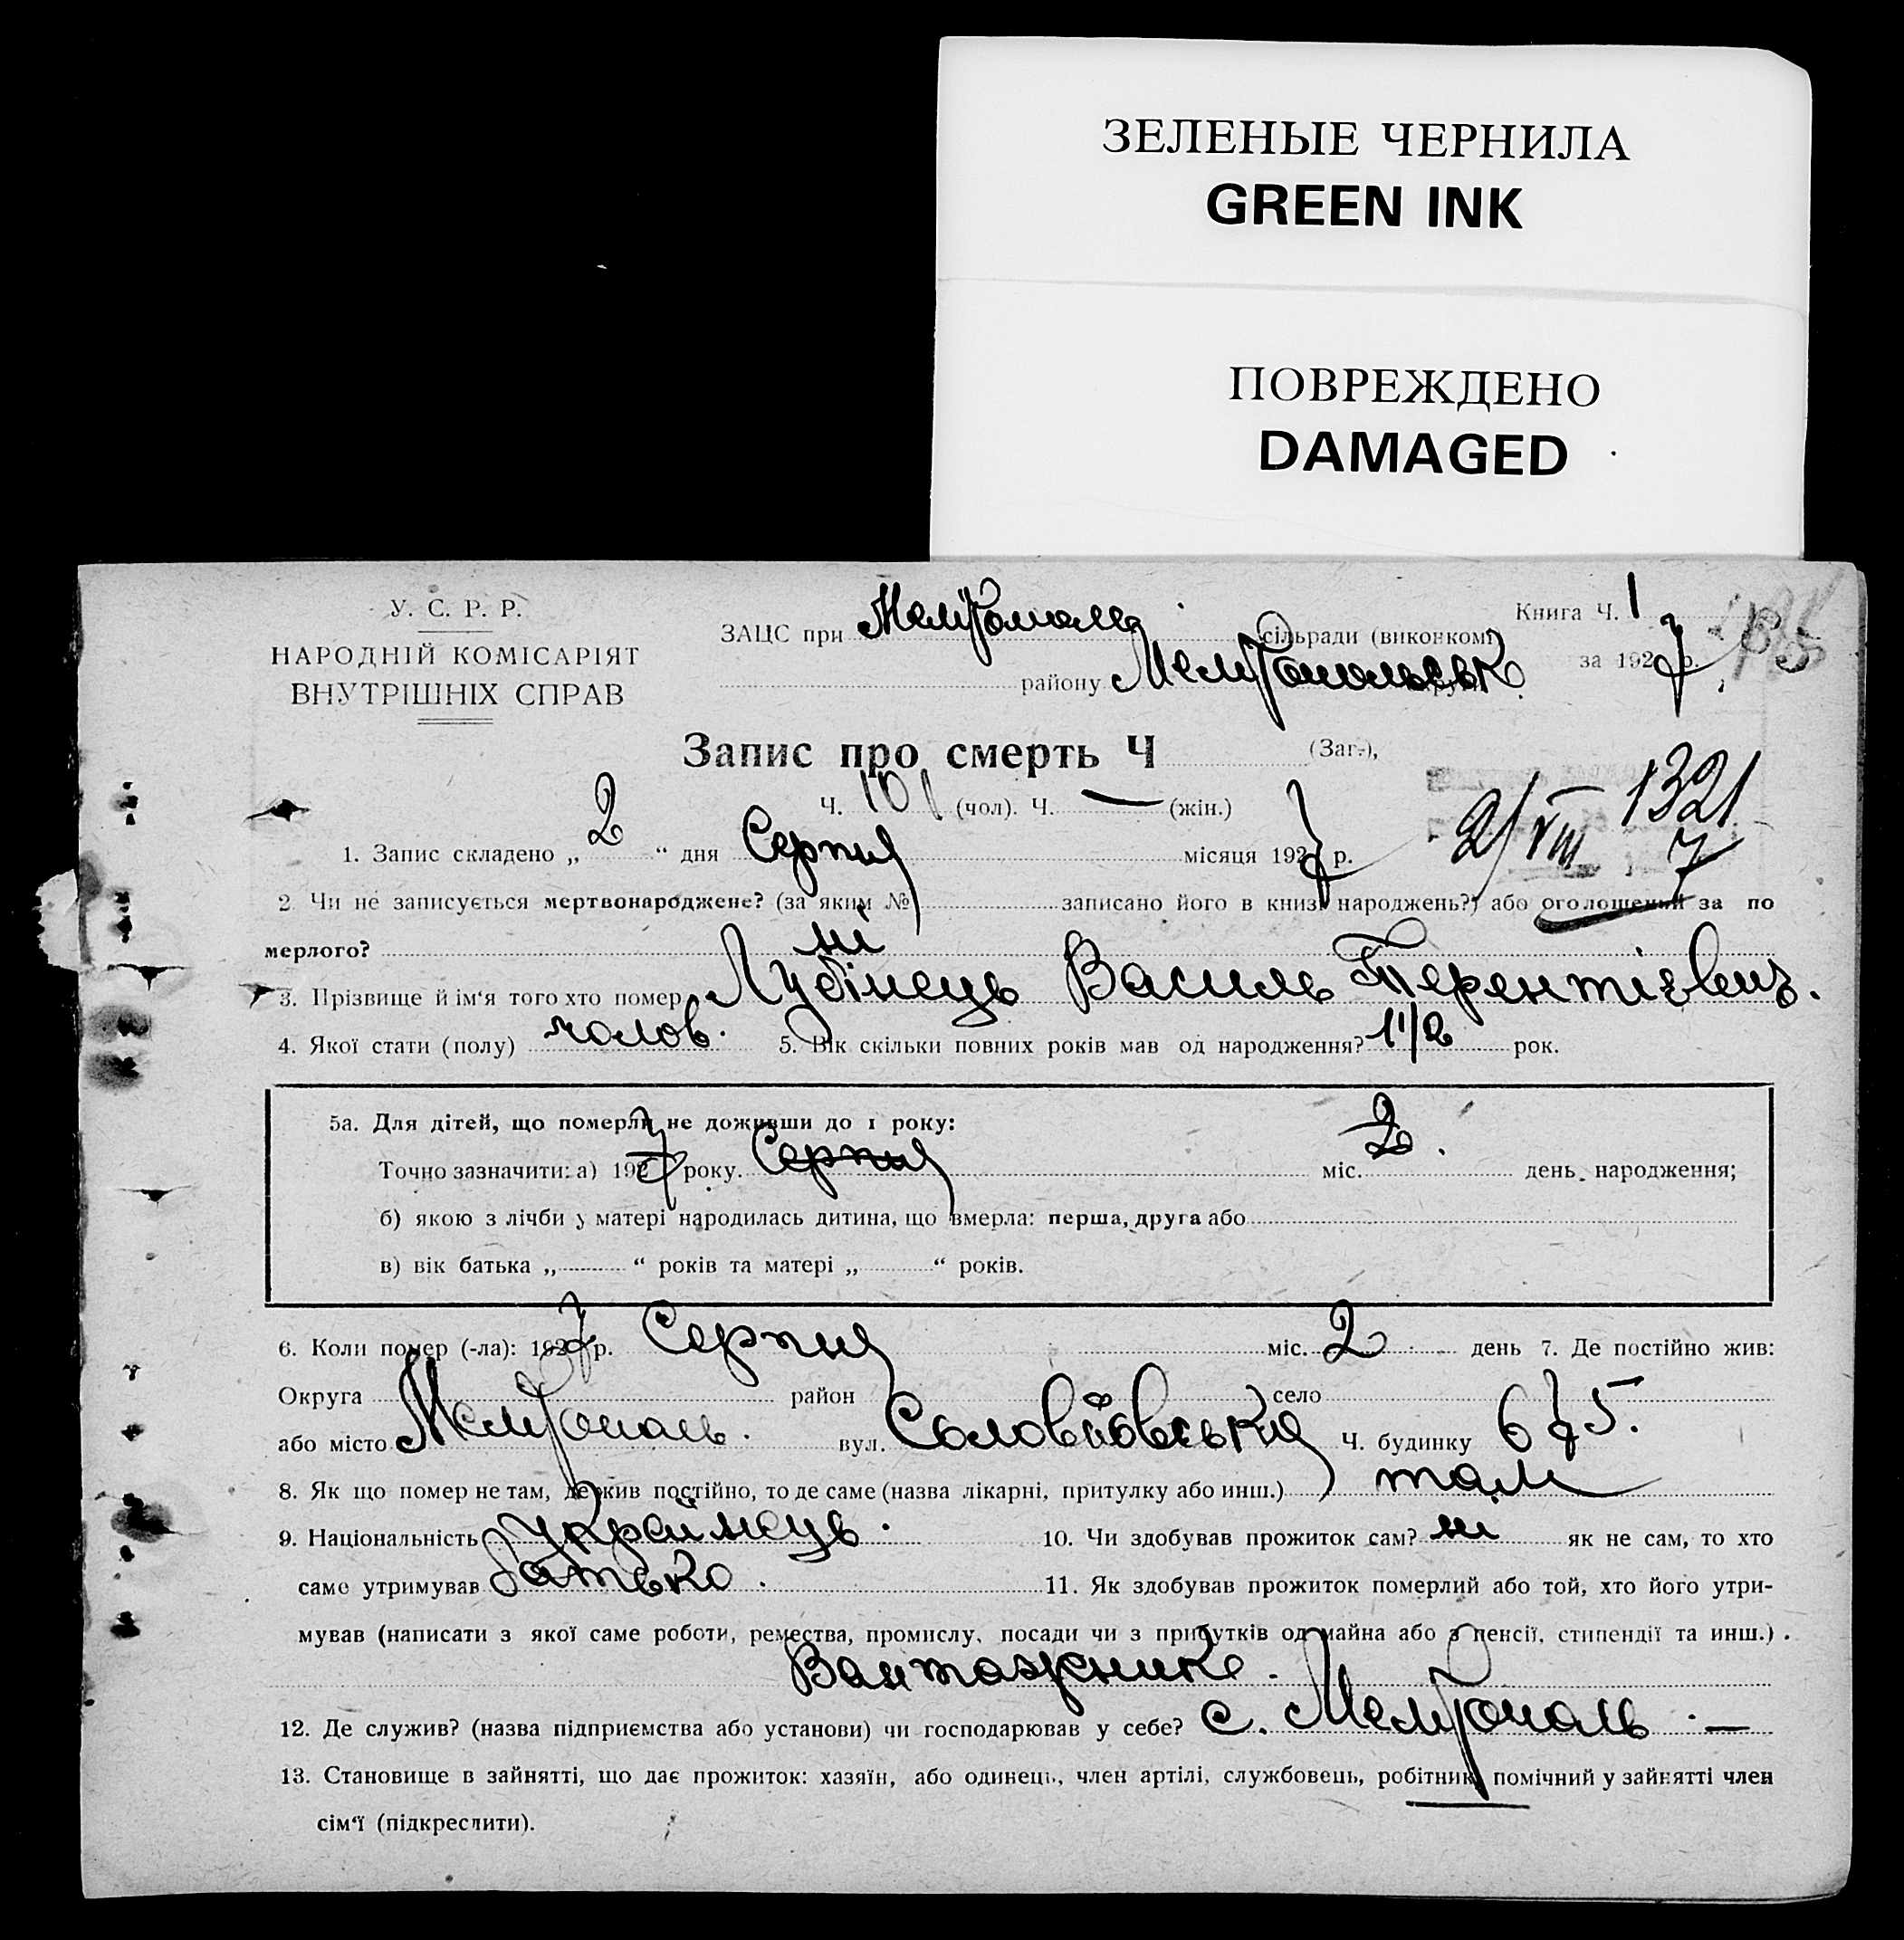 ЗЕЛЕНЫЕ ЧЕРНИЛА
GREEN INK
ПОВРЕЖДЕНО
DAMAGED
У. С. Р. Р.
НАРОДНІЙ КОМІСАРІЯТ
ВНУТРІШНІХ СПРАВ
Книга Ч. 1
ЗАЦС при сільради (виконкомі)
за 1927 р.
району Мелітопольськ
Запис про смерть Ч (Заг.),
Ч. 101 (чол). Ч. — (жін.)
1321
2/VIII 7
1. Запис складено „ 2 “ дня Серпня місяця 1927 р.
2 Чи не записується мертвонароджене? (за яким № записано його в книзі народжень?) або оголошений за по
мерлого? ні
3. Прізвище й ім‘я того хто помер Лубінець Василь Терентієвич.
4. Якої стати (полу) чолов. 5. Вік скільки повних років мав од народження? 1 1/2 рок.
5а. Для дітей, що померли не доживши до 1 року:
Точно зазначити: а) 1927 року. Серпня міс. 2 день народження;
б) якою з лічби у матері народилась дитина, що вмерла: перша, друга або
в) вік батька „ “ років та матері „ “ років.
6. Коли помер (-ла): 1927 р. Серпня міс. 2 день 7. Де постійно жив:
Округа район село
або місто Мелітополь. вул. Соловйовська Ч. будинку 675.
8. Як що помер не там, де жив постійно, то де саме (назва лікарні, притулку або инш.) там
9. Національність Українець. 10. Чи здобував прожиток сам? ні як не сам, то хто
саме утримував батько. 11. Як здобував прожиток померлий або той, хто його утри-
мував (написати з якої саме роботи, ремества, промислу, посади чи з прибутків од майна або з пенсії, стипендії та инш.).
Вантажник.
12. Де служив? (назва підприємства або установи) чи господарював у себе? с. Мелітополь. —
13. Становище в зайнятті, що дає прожиток: хазяїн, або одинець, член артілі, службовець, робітник, помічний у зайнятті член
сім‘ї (підкреслити).